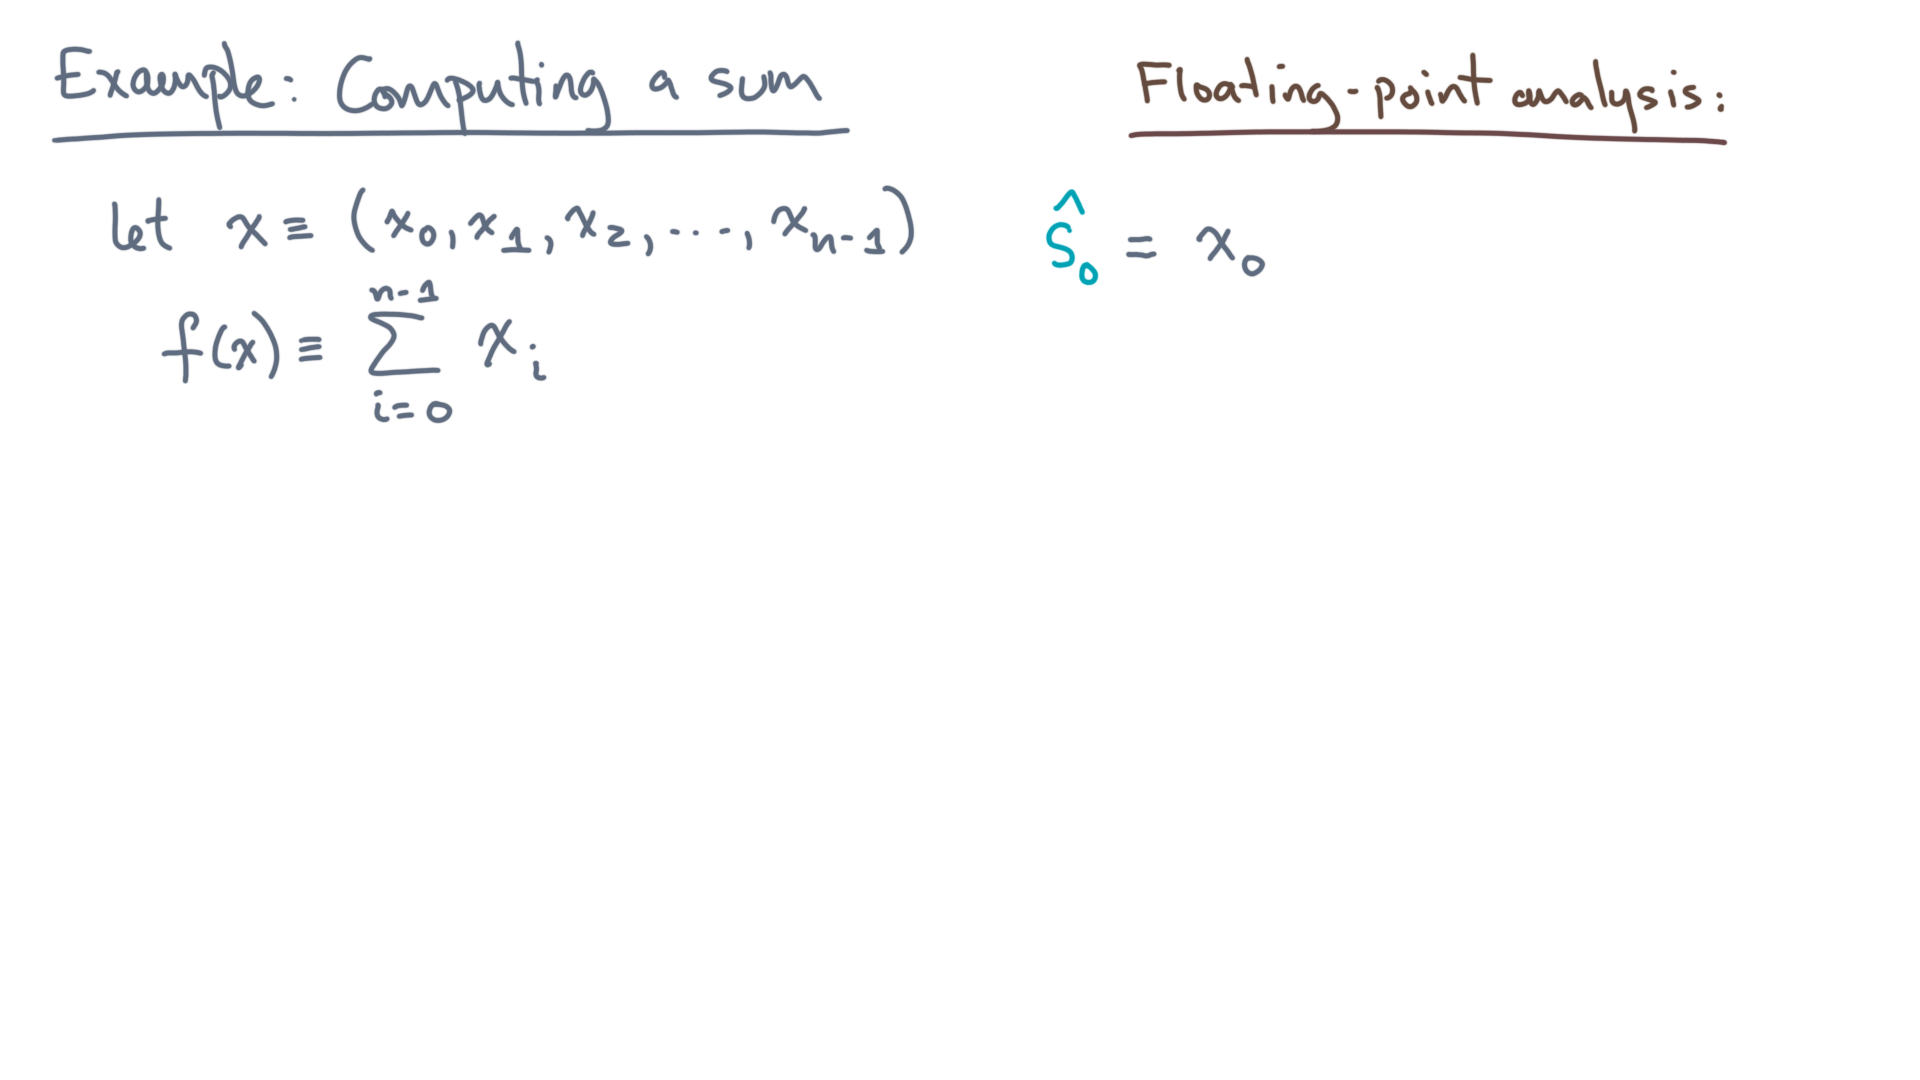 Example: Computing a sum
let x ≡ (x₀, x₁, x₂, ..., xₙ₋₁)
f(x) ≡ ∑ᵢ₌₀ⁿ⁻¹ xᵢ
Floating-point analysis:
ŝ₀ = x₀